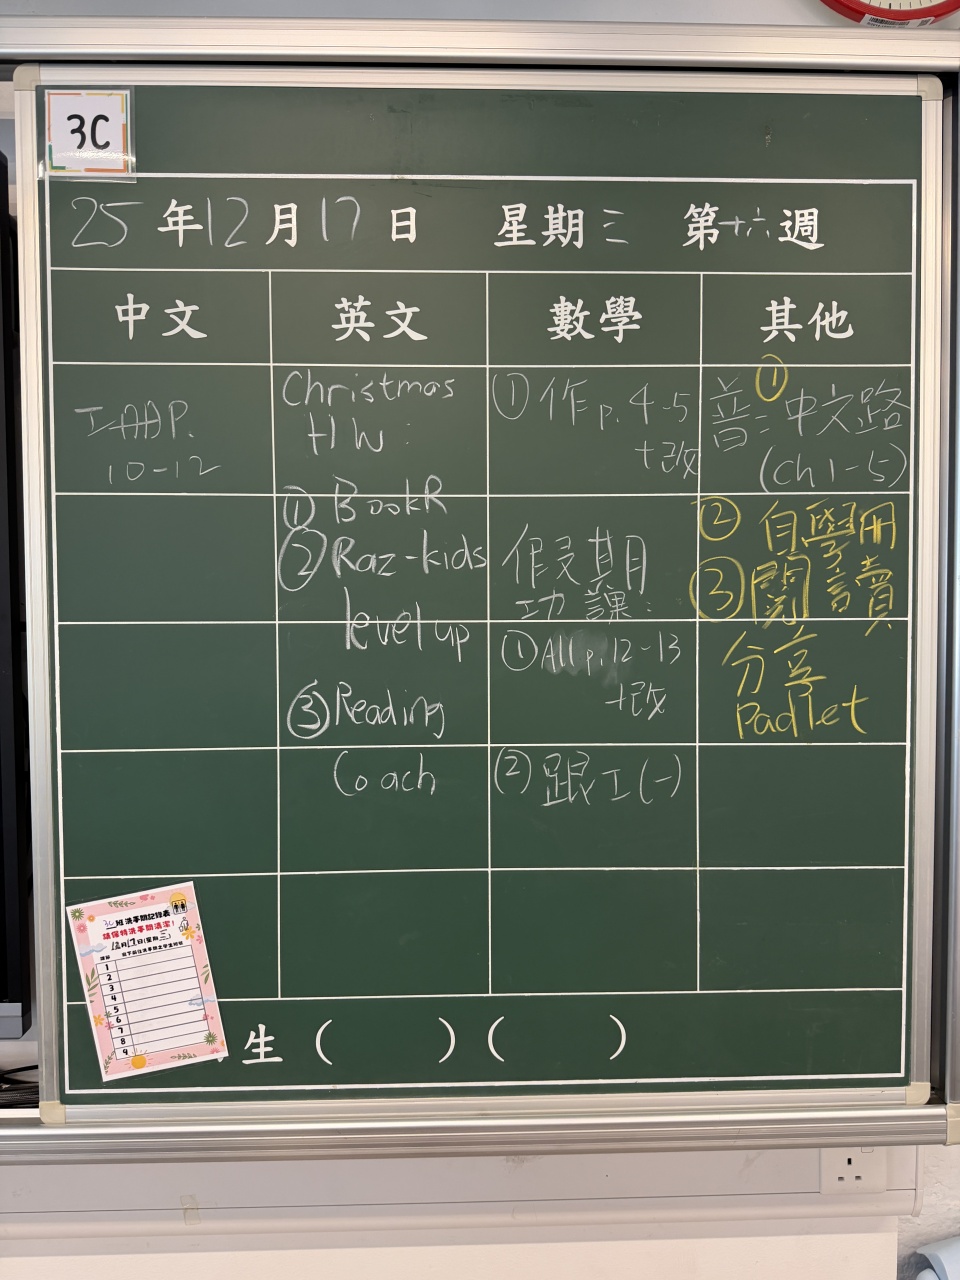 3C
25年12月17日 星期三 第十六週
中文 英文 數學 其他
工AAP.
10-12
Christmas
HW:
① BookR
② Raz-kids
level up
③ Reading
Coach
① 作 p. 4-5
+改
假期
功課:
① All p. 12-13
+改
② 跟工(一)
①
普: 中文路
(ch 1-5)
② 自學冊
③ 閱讀
分享
Padlet
3C班洗手間記錄表
請保持洗手間清潔!
12月17日(星期三)
1
2
3
4
5
6
7
8
9
生 ( ) ( )